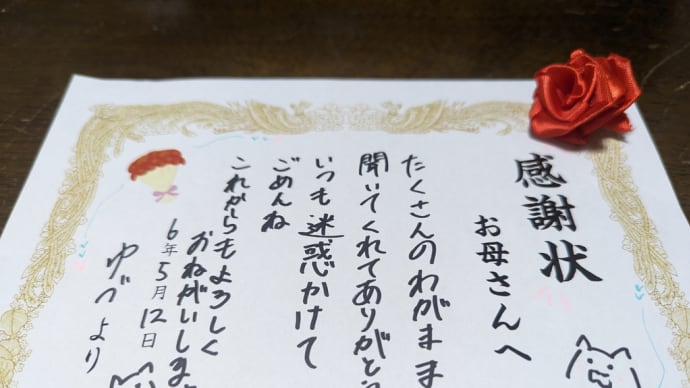 感謝状
お母さんへ
たくさんのわがまま
聞いてくれてありがと
いつも迷惑かけて
ごめんね
これからもよろしく
おねがいしま
6年5月12日
ゆづより